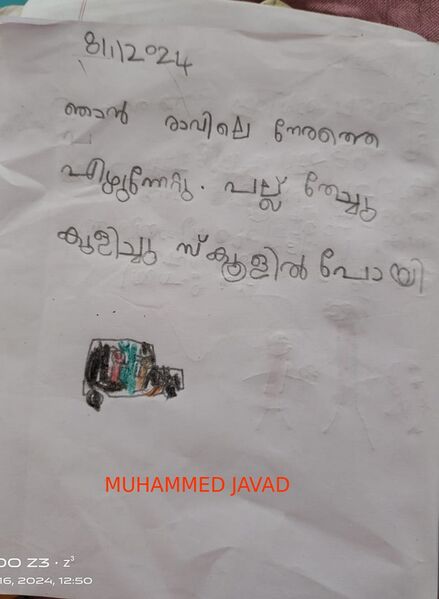 8/1/2024
ഞാൻ രാവിലെ നേരത്തെ
എഴുന്നേറ്റു. പല്ല് തേച്ചു
കുളിച്ചു സ്കൂളിൽ പോയി
MUHAMMED JAVAD
OO Z3 · z³
16, 2024, 12:50